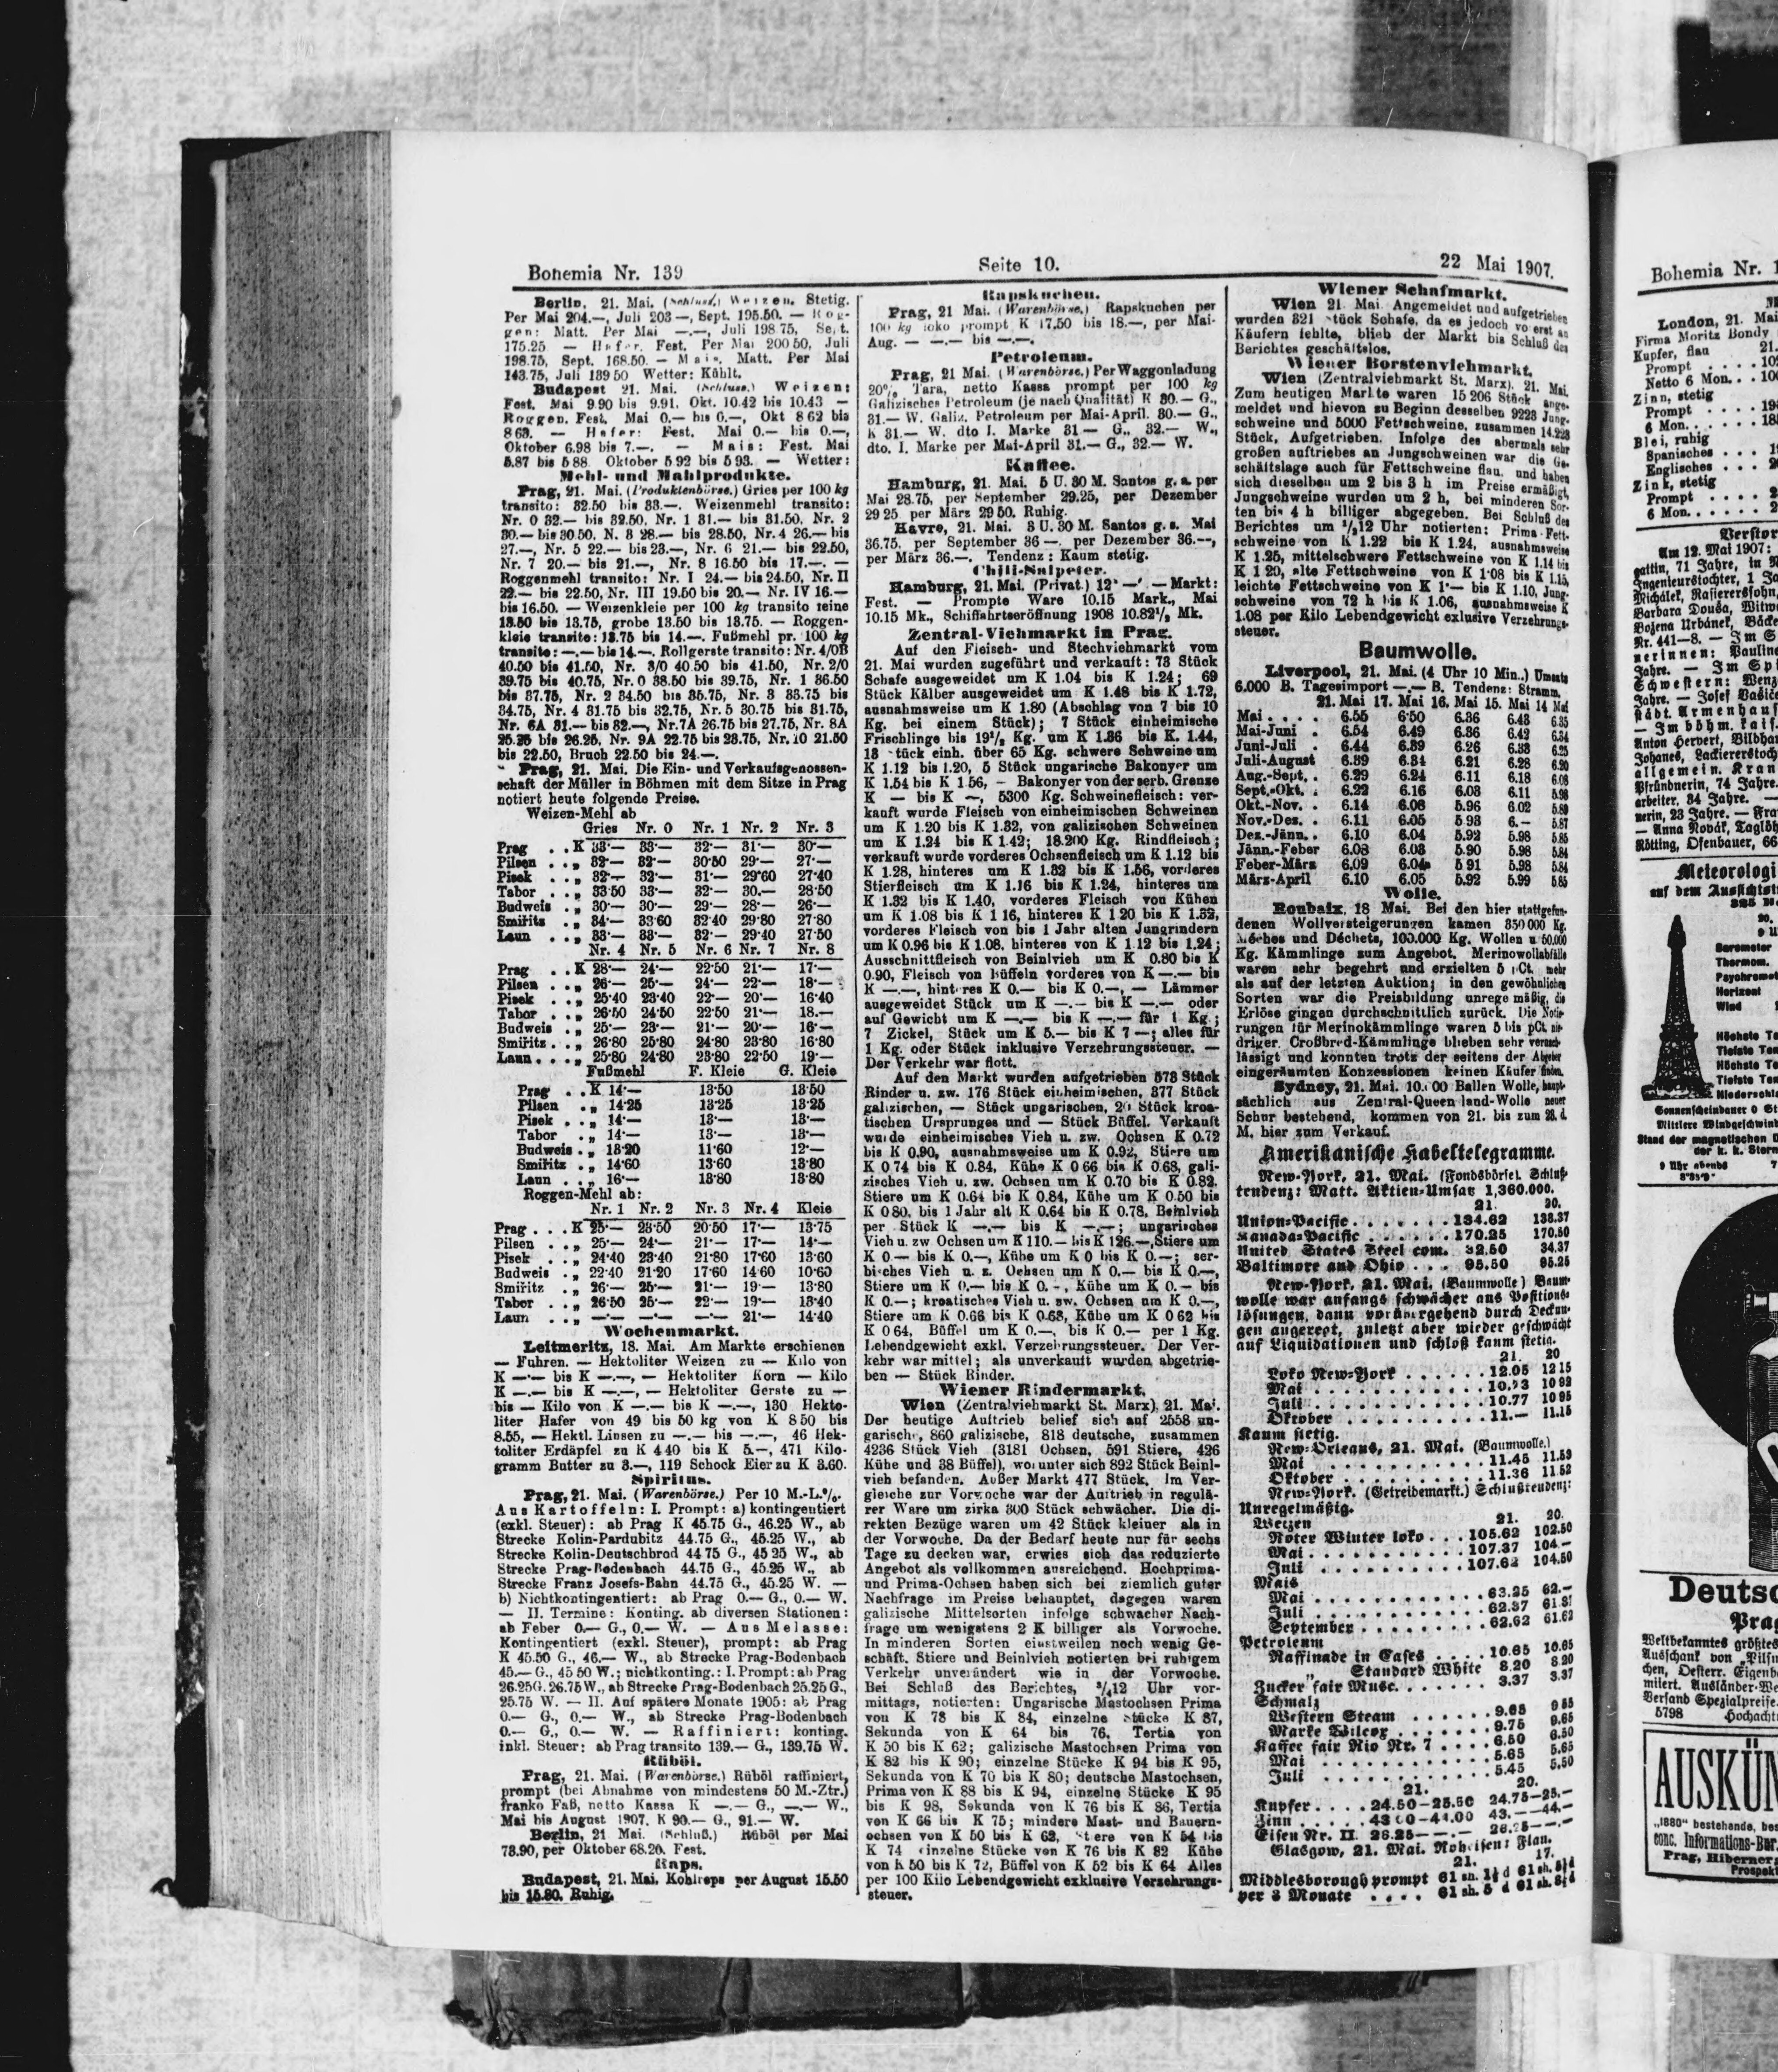 Bohemia Nr. 139
Seite 10.
22 Mai 1907.
Berlin, 21. Mai. (Schluss.) Weizen. Stetig.
Per Mai 204.—, Juli 203 —, Sept. 195.50. — Rog-
gen: Matt. Per Mai —.—, Juli 198 75, Sept.
175.25 — Hafer. Fest. Per Mai 200 50, Juli
198.75, Sept. 168.50. — Mais. Matt. Per Mai
143.75, Juli 139 50 Wetter: Kühlt.
Budapest 21. Mai. (Schluss.) Weizen:
Fest. Mai 9.90 bis 9.91. Okt. 10.42 bis 10.43 —
Roggen. Fest. Mai 0.— bis 0.—, Okt 8 62 bis
8 63. — Hafer: Fest. Mai 0.— bis 0.—,
Oktober 6.98 bis 7.—. Mais: Fest. Mai
5.87 bis 5 88. Oktober 5 92 bis 5 93. — Wetter:
Mehl- und Mahlprodukte.
Prag, 21. Mai. (Produktenbörse.) Gries per 100 kg
transito: 32.50 bis 33.—. Weizenmehl transito:
Nr. 0 32.— bis 32.50, Nr. 1 31.— bis 31.50, Nr. 2
30.— bis 30 50. N. 3 28.— bis 28.50, Nr. 4 26.— bis
27.—, Nr. 5 22.— bis 23.—, Nr. 6 21.— bis 22.50,
Nr. 7 20.— bis 21.—, Nr. 8 16.50 bis 17.—. —
Roggenmehl transito: Nr. I 24.— bis 24.50, Nr. II
22.— bis 22.50, Nr. III 19.50 bis 20.— Nr. IV 16.—
bis 16.50. — Weizenkleie per 100 kg transito feine
13.50 bis 13.75, grobe 13.50 bis 13.75. — Roggen-
kleie transito: 13.75 bis 14.—. Fußmehl pr. 100 kg
transito: —.— bis 14.—. Rollgerste transito: Nr. 4/0B
40.50 bis 41.50, Nr. 3/0 40.50 bis 41.50, Nr. 2/0
39.75 bis 40.75, Nr. 0 38.50 bis 39.75, Nr. 1 36.50
bis 37.75, Nr. 2 34.50 bis 35.75, Nr. 3 33.75 bis
34.75, Nr. 4 31.75 bis 32.75, Nr. 5 30.75 bis 31.75,
Nr. 6A 31.— bis 32.—, Nr. 7A 26.75 bis 27.75, Nr. 8A
25.25 bis 26.25, Nr. 9A 22.75 bis 23.75, Nr. 10 21.50
bis 22.50, Bruch 22.50 bis 24.—.
Prag, 21. Mai. Die Ein- und Verkaufsgenossen-
schaft der Müller in Böhmen mit dem Sitze in Prag
notiert heute folgende Preise.
Weizen-Mehl ab
Gries Nr. 0 Nr. 1 Nr. 2 Nr. 3
Prag . . K 33·— 33·— 32·— 31·— 30·—
Pilsen . . „ 32·— 32·— 30·50 29·— 27·—
Pisek . . „ 32·— 32·— 31·— 29·60 27·40
Tabor . . „ 33·50 33·— 32·— 30.— 28·50
Budweis . „ 30·— 30·— 29·— 28·— 26·—
Smiřitz . „ 34·— 33·60 32·40 29·80 27·80
Laun . . „ 33·— 33·— 32·— 29·40 27·50
Nr. 4 Nr. 5 Nr. 6 Nr. 7 Nr. 8
Prag . . K 28·— 24·— 22·50 21·— 17·—
Pilsen . . „ 26·— 25·— 24·— 22·— 18·—
Pisek . . „ 25·40 23·40 22·— 20·— 16·40
Tabor . . „ 26·50 24·50 22·50 21·— 18.—
Budweis . „ 25·— 23·— 21·— 20·— 16·—
Smiřitz . . „ 26·80 25·80 24·80 23·80 16·80
Laun . . . „ 25·80 24·80 23·80 22·50 19·—
Fußmehl F. Kleie G. Kleie
Prag . . K 14·— 13·50 13·50
Pilsen . „ 14·25 13·25 13·25
Pisek . . „ 14·— 13·— 13·—
Tabor . „ 14·— 13·— 13·—
Budweis . „ 13·20 11·60 12·—
Smiřitz . „ 14·60 13·60 13·80
Laun . . „ 16·— 13·80 13·80
Roggen-Mehl ab:
Nr. 1 Nr. 2 Nr. 3 Nr. 4 Kleie
Prag . . . K 25·— 23·50 20·50 17·— 13·75
Pilsen . . „ 25·— 24·— 21·— 17·— 14·—
Pisek . . „ 24·40 23·40 21·80 17·60 13·60
Budweis . „ 22·40 21·20 17·60 14·60 10·60
Smiřitz . „ 26·— 25·— 21·— 19·— 13·80
Tabor . . „ 26·50 25·— 22·— 19·— 13·40
Laun . . „ —·— —·— —·— 21·— 14·40
Wochenmarkt.
Leitmeritz, 18. Mai. Am Markte erschienen
— Fuhren. — Hektoliter Weizen zu — Kilo von
K —·— bis K —.—, — Hektoliter Korn — Kilo
K —.— bis K —.—, — Hektoliter Gerste zu —
bis — Kilo von K —.— bis K —.—, 130 Hekto-
liter Hafer von 49 bis 50 kg von K 8 50 bis
8.55, — Hektl. Linsen zu —.— bis —.—, 46 Hek-
toliter Erdäpfel zu K 4 40 bis K 5.—, 471 Kilo-
gramm Butter zu 3.—, 119 Schock Eier zu K 3.60.
Spiritus.
Prag, 21. Mai. (Warenbörse.) Per 10 M.-L.%.
Aus Kartoffeln: I. Prompt: a) kontingentiert
(exkl. Steuer): ab Prag K 45.75 G., 46.25 W., ab
Strecke Kolin-Pardubitz 44.75 G., 45.25 W., ab
Strecke Kolin-Deutschbrod 44 75 G., 45 25 W., ab
Strecke Prag-Bodenbach 44.75 G., 45.25 W., ab
Strecke Franz Josefs-Bahn 44.75 G., 45.25 W. —
b) Nichtkontingentiert: ab Prag 0.— G., 0.— W.
— II. Termine: Konting. ab diversen Stationen:
ab Feber 0.— G., 0.— W. — Aus Melasse:
Kontingentiert (exkl. Steuer), prompt: ab Prag
K 45.50 G., 46.— W., ab Strecke Prag-Bodenbach
45.— G., 45 50 W.; nichtkonting.: I. Prompt: ab Prag
26.25G. 26.75 W., ab Strecke Prag-Bodenbach 25.25 G.,
25.75 W. — II. Auf spätere Monate 1905: ab Prag
0.— G., 0.— W., ab Strecke Prag-Bodenbach
0.— G., 0.— W. — Raffiniert: konting.
inkl. Steuer: ab Prag transito 139.— G., 139.75 W.
Rüböl.
Prag, 21. Mai. (Warenbörse.) Rüböl raffiniert,
prompt (bei Abnahme von mindestens 50 M.-Ztr.)
franko Faß, netto Kassa K —.— G., —.— W.,
Mai bis August 1907. K 90.— G., 91.— W.
Berlin, 21 Mai. (Schluß.) Rüböl per Mai
73.90, per Oktober 68.20. Fest.
Raps.
Budapest, 21. Mai. Kohlreps per August 15.50
bis 15.80. Ruhig.
Rapskuchen.
Prag, 21 Mai. (Warenbörse.) Rapskuchen per
100 kg loko prompt K 17.50 bis 18.—, per Mai-
Aug. — —.— bis —.—.
Petroleum.
Prag, 21 Mai. (Warenbörse.) Per Waggonladung
20% Tara, netto Kassa prompt per 100 kg
Galizisches Petroleum (je nach Qualität) K 30.— G.,
31.— W. Galiz. Petroleum per Mai-April. 30.— G.,
K 31.— W. dto I. Marke 31— G., 32.— W.,
dto. I. Marke per Mai-April 31.— G., 32.— W.
Kaffee.
Hamburg, 21. Mai. 5 U. 30 M. Santos g. a. per
Mai 28.75, per September 29.25, per Dezember
29 25 per März 29 50. Ruhig.
Havre, 21. Mai. 3 U. 30 M. Santos g. s. Mai
36.75, per September 36 —. per Dezember 36.—,
per März 36.—. Tendenz: Kaum stetig.
Chili-Salpeter.
Hamburg, 21. Mai. (Privat.) 12' —'. — Markt:
Fest. — Prompte Ware 10.15 Mark., Mai
10.15 Mk., Schiffahrtseröffnung 1908 10.82½ Mk.
Zentral-Viehmarkt in Prag.
Auf den Fleisch- und Stechviehmarkt vom
21. Mai wurden zugeführt und verkauft: 73 Stück
Schafe ausgeweidet um K 1.04 bis K 1.24; 69
Stück Kälber ausgeweidet um K 1.48 bis K 1.72,
ausnahmsweise um K 1.80 (Abschlag von 7 bis 10
Kg. bei einem Stück); 7 Stück einheimische
Frischlinge bis 19½ Kg. um K 1.36 bis K. 1.44,
13 Stück einh. über 65 Kg. schwere Schweine um
K 1.12 bis 1.20, 5 Stück ungarische Bakonyer um
K 1.54 bis K 1 56, — Bakonyer von der serb. Grenze
K — bis K —, 5300 Kg. Schweinefleisch: ver-
kauft wurde Fleisch von einheimischen Schweinen
um K 1.20 bis K 1.32, von galizischen Schweinen
um K 1.24 bis K 1 42; 18.200 Kg. Rindfleisch;
verkauft wurde vorderes Ochsenfleisch um K 1.12 bis
K 1.28, hinteres um K 1.32 bis K 1.56, vorderes
Stierfleisch um K 1.16 bis K 1.24, hinteres um
K 1.32 bis K 1.40, vorderes Fleisch von Kühen
um K 1.08 bis K 1 16, hinteres K 1 20 bis K 1.32,
vorderes Fleisch von bis 1 Jahr alten Jungrindern
um K 0.96 bis K 1.08, hinteres von K 1.12 bis 1.24;
Ausschnittfleisch von Beinlvieh um K 0.80 bis K
0.90, Fleisch von Büffeln vorderes von K —.— bis
K —.—, hinteres K 0.— bis K 0.—, — Lämmer
ausgeweidet Stück um K —.— bis K —.— oder
auf Gewicht um K —.— bis K —.— für 1 Kg.;
7 Zickel, Stück um K 5.— bis K 7 —; alles für
1 Kg. oder Stück inklusive Verzehrungssteuer. —
Der Verkehr war flott.
Auf den Markt wurden aufgetrieben 573 Stück
Rinder u. zw. 176 Stück einheimischen, 377 Stück
galizischen, — Stück ungarischen, 20 Stück kroa-
tischen Ursprunges und — Stück Büffel. Verkauft
wurde einheimisches Vieh u. zw. Ochsen K 0.72
bis K 0.90, ausnahmsweise um K 0.92, Stiere um
K 0 74 bis K 0.84, Kühe K 0 66 bis K 0.68, gali-
zisches Vieh u. zw. Ochsen um K 0.70 bis K 0.82.
Stiere um K 0.64 bis K 0.84, Kühe um K 0.50 bis
K 0 80, bis 1 Jahr alt K 0.64 bis K 0.78, Beinlvieh
per Stück K —.— bis K —.—; ungarisches
Vieh u. zw Ochsen um K 110.— bis K 126.—, Stiere um
K 0.— bis K 0.—, Kühe um K 0 bis K 0.—; ser-
bisches Vieh u. z. Ochsen um K 0.— bis K 0.—,
Stiere um K 0.— bis K 0. -, Kühe um K 0.— bis
K 0.—; kroatisches Vieh u. zw. Ochsen um K 0.—,
Stiere um K 0.66 bis K 0.68, Kühe um K 0 62 bis
K 0 64, Büffel um K 0.—, bis K 0.— per 1 Kg.
Lebendgewicht exkl. Verzehrungssteuer. Der Ver-
kehr war mittel; als unverkauft wurden abgetrie-
ben — Stück Rinder.
Wiener Rindermarkt.
Wien (Zentralviehmarkt St. Marx), 21. Mai.
Der heutige Auftrieb belief sich auf 2558 un-
garische, 860 galizische, 818 deutsche, zusammen
4236 Stück Vieh (3181 Ochsen, 591 Stiere, 426
Kühe und 38 Büffel), worunter sich 892 Stück Beinl-
vieh befanden. Außer Markt 477 Stück. Im Ver-
gleiche zur Vorwoche war der Auftrieb in regulä-
rer Ware um zirka 300 Stück schwächer. Die di-
rekten Bezüge waren um 42 Stück kleiner als in
der Vorwoche. Da der Bedarf heute nur für sechs
Tage zu decken war, erwies sich das reduzierte
Angebot als vollkommen ausreichend. Hochprima-
und Prima-Ochsen haben sich bei ziemlich guter
Nachfrage im Preise behauptet, dagegen waren
galizische Mittelsorten infolge schwacher Nach-
frage um wenigstens 2 K billiger als Vorwoche.
In minderen Sorten einstweilen noch wenig Ge-
schäft. Stiere und Beinlvieh notierten bei ruhigem
Verkehr unverändert wie in der Vorwoche.
Bei Schluß des Berichtes, ¾12 Uhr vor-
mittags, notierten: Ungarische Mastochsen Prima
von K 78 bis K 84, einzelne Stücke K 87,
Sekunda von K 64 bis 76, Tertia von
K 50 bis K 62; galizische Mastochsen Prima von
K 82 bis K 90; einzelne Stücke K 94 bis K 95,
Sekunda von K 70 bis K 80; deutsche Mastochsen,
Prima von K 88 bis K 94, einzelne Stücke K 95
bis K 98, Sekunda von K 76 bis K 86, Tertia
von K 66 bis K 75; mindere Mast- und Bauern-
ochsen von K 50 bis K 62, Stiere von K 54 bis
K 74 einzelne Stücke von K 76 bis K 82 Kühe
von K 50 bis K 72, Büffel von K 52 bis K 64 Alles
per 100 Kilo Lebendgewicht exklusive Verzehrungs-
steuer.
Wiener Schafmarkt.
Wien 21 Mai. Angemeldet und aufgetrieben
wurden 321 Stück Schafe, da es jedoch vorerst an
Käufern fehlte, blieb der Markt bis Schluß des
Berichtes geschäftslos.
Wiener Borstenviehmarkt.
Wien (Zentralviehmarkt St. Marx), 21. Mai.
Zum heutigen Markte waren 15 206 Stück ange-
meldet und hievon zu Beginn desselben 9223 Jung-
schweine und 5000 Fettschweine, zusammen 14.223
Stück, Aufgetrieben. Infolge des abermals sehr
großen auftriebes an Jungschweinen war die Ge-
schäftslage auch für Fettschweine flau, und haben
sich dieselben um 2 bis 3 h im Preise ermäßigt,
Jungschweine wurden um 2 h, bei minderen Sor-
ten bis 4 h billiger abgegeben. Bei Schluß des
Berichtes um ½12 Uhr notierten: Prima Fett-
schweine von K 1.22 bis K 1.24, ausnahmsweise
K 1.25, mittelschwere Fettschweine von K 1.14 bis
K 1 20, alte Fettschweine von K 1·08 bis K 1.15,
leichte Fettschweine von K 1·— bis K 1.10, Jung-
schweine von 72 h bis K 1.06, ausnahmsweise K
1.08 per Kilo Lebendgewicht exlusive Verzehrungs-
steuer.
Baumwolle.
Liverpool, 21. Mai. (4 Uhr 10 Min.) Umsatz
6.000 B. Tagesimport —.— B. Tendenz: Stramm.
21. Mai 17. Mai 16. Mai 15. Mai 14 Mai
Mai . . . . 6.55 6·50 6.36 6.43 6 35
Mai-Juni . 6.54 6.49 6.36 6.42 6.34
Juni-Juli . 6.44 6.39 6.26 6.33 6 25
Juli-August 6.39 6.34 6.21 6.28 6 20
Aug.-Sept. . 6.29 6.24 6.11 6.18 6 08
Sept.-Okt. . 6.22 6.16 6.03 6.11 5.98
Okt.-Nov. . 6.14 6.08 5.96 6 02 5.89
Nov.-Dez. . 6.11 6.05 5 93 6.— 5.87
Dez.-Jänn. . 6.10 6.04 5.92 5.98 5.85
Jänn.-Feber 6.08 6.03 5.90 5.98 5.84
Feber-März 6.09 6.04 5 91 5.98 5.84
März-April 6.10 6.05 5.92 5.99 5 85
Wolle.
Roubaix, 18 Mai. Bei den hier stattgefun-
denen Wollversteigerungen kamen 350 000 Kg.
Mèches und Déchets, 100.000 Kg. Wollen u. 60.000
Kg. Kämmlinge zum Angebot. Merinowollabfälle
waren sehr begehrt und erzielten 5 pCt. mehr
als auf der letzten Auktion; in den gewöhnlichen
Sorten war die Preisbildung unregelmäßig, die
Erlöse gingen durchschnittlich zurück. Die Notie-
rungen für Merinokämmlinge waren 5 bis pCt. nie-
driger. Croßbred-Kämmlinge blieben sehr vernach-
lässigt und konnten trotz der seitens der Abgeber
eingeräumten Konzessionen keinen Käufer finden.
Sydney, 21. Mai. 10.000 Ballen Wolle, haupt-
sächlich aus Zentral-Queensland-Wolle neuer
Schur bestehend, kommen von 21. bis zum 28. d.
M. hier zum Verkauf.
Amerikanische Kabeltelegramme.
New-York, 21. Mai. (Fondsbörse). Schluß-
tendenz: Matt. Aktien-Umsatz 1,360.000.
21. 20.
Union-Pacific . . . . . . . 134.62 138.37
Kanada-Pacific . . . . . . 170.25 170.50
United States Steel com. 32.50 34.37
Baltimore and Ohio . . . 95.50 95.25
New-York, 21. Mai. (Baumwolle) Baum-
wolle war anfangs schwächer aus Positions-
lösungen, dann vorübergehend durch Deckun-
gen angeregt, zuletzt aber wieder geschwächt
auf Liquidationen und schloß kaum stetig.
21. 20
Loko New-York . . . . . . 12.05 12 15
Mai . . . . . . . . . . . . 10.73 10 92
Juli . . . . . . . . . . . . 10.77 10 95
Oktober . . . . . . . . . 11.— 11.15
Kaum stetig.
New-Orleans, 21. Mai. (Baumwolle.)
Mai . . . . . . . . . . . . 11.45 11.53
Oktober . . . . . . . . . 11.36 11.52
New-York. (Getreidemarkt.) Schlußtendenz:
Unregelmäßig.
Weizen 21. 20.
Roter Winter loko . . . 105.62 102.50
Mai . . . . . . . . . . . 107.37 104.—
Juli . . . . . . . . . . . 107.62 104.50
Mais
Mai . . . . . . . . . . . . 63.25 62.—
Juli . . . . . . . . . . . . 62.37 61.37
September . . . . . . . . 62.62 61.62
Petroleum
Raffinade in Cases . . . . 10.65 10.65
„ Standard White 8.20 8 20
Zucker fair Musc. . . . . . . 3.37 3.37
Schmalz
Western Steam . . . . . . 9.65 9 55
Marke Wilcox . . . . . . . 9.75 9.65
Kaffee fair Rio Nr. 7 . . . . 6.50 6.50
Mai . . . . . . . . . . . 5.65 5.65
Juli . . . . . . . . . . . 5.45 5.50
21. 20.
Kupfer . . . . . 24.50—25.50 24.75—25.—
Zinn . . . . . 43 00—44.00 43.——44.—
Eisen Nr. II. 26.25——.— 26.25——.—
Glasgow, 21. Mai. Roheisen: Flau.
21. 17.
Middlesborough prompt
per 3 Monate . . . .
Bohemia Nr. 1
London, 21. Mai
Firma Moritz Bondy
Kupfer, flau
Prompt
Netto 6 Mon. . .
Zinn, stetig
Prompt
6 Mon. . . .
Blei, ruhig
Spanisches
Englisches
Zink, stetig
Prompt
6 Mon.
Verstor
Am 12. Mai 1907:
gattin, 71 Jahre, in
Ingenieurstochter, 1 Ja
Michálek, Rasierersohn,
Barbara Douša, Witwe
Božena Urbánek, Bäcke
Nr. 441—8. — Im S
nerinnen: Pauline
Jahre. — Im Spi
Schwestern: Wenz
Jahre. — Josef Vašíče
städt. Armenhaus
— Im böhm. kais.
Anton Herbert, Bildha
Johanes, Lackiererstoch
allgemein. Kran
Pfründnerin, 74 Jahre.
arbeiter, 34 Jahre. —
nerin, 23 Jahre. — Fra
— Anna Novák, Taglöh
Rötting, Ofenbauer, 66
Meteorologi
auf dem Aussichts
Barometer
Thermom.
Psychromet
Horizont
Wind
Höchste Te
Tiefste Te
Höchste Te
Tiefste Te
Niederschl
Sonnenscheindauer 0 St
Mittlere Windgeschwind
Stand der magnetischen D
der k. k. Stern
9 Uhr abends
Deutsc
Prag
Weltbekanntes größtes
Ausschank von „Pilsn
chen, Oesterr. Eigenb
miitert. Ausländer-We
Versand Spezialpreise.
5798 Hochacht
AUSKÜN
„1880" bestehende, bes
conc. Informations-Bur.
Prag, Hiberner
Prospekt